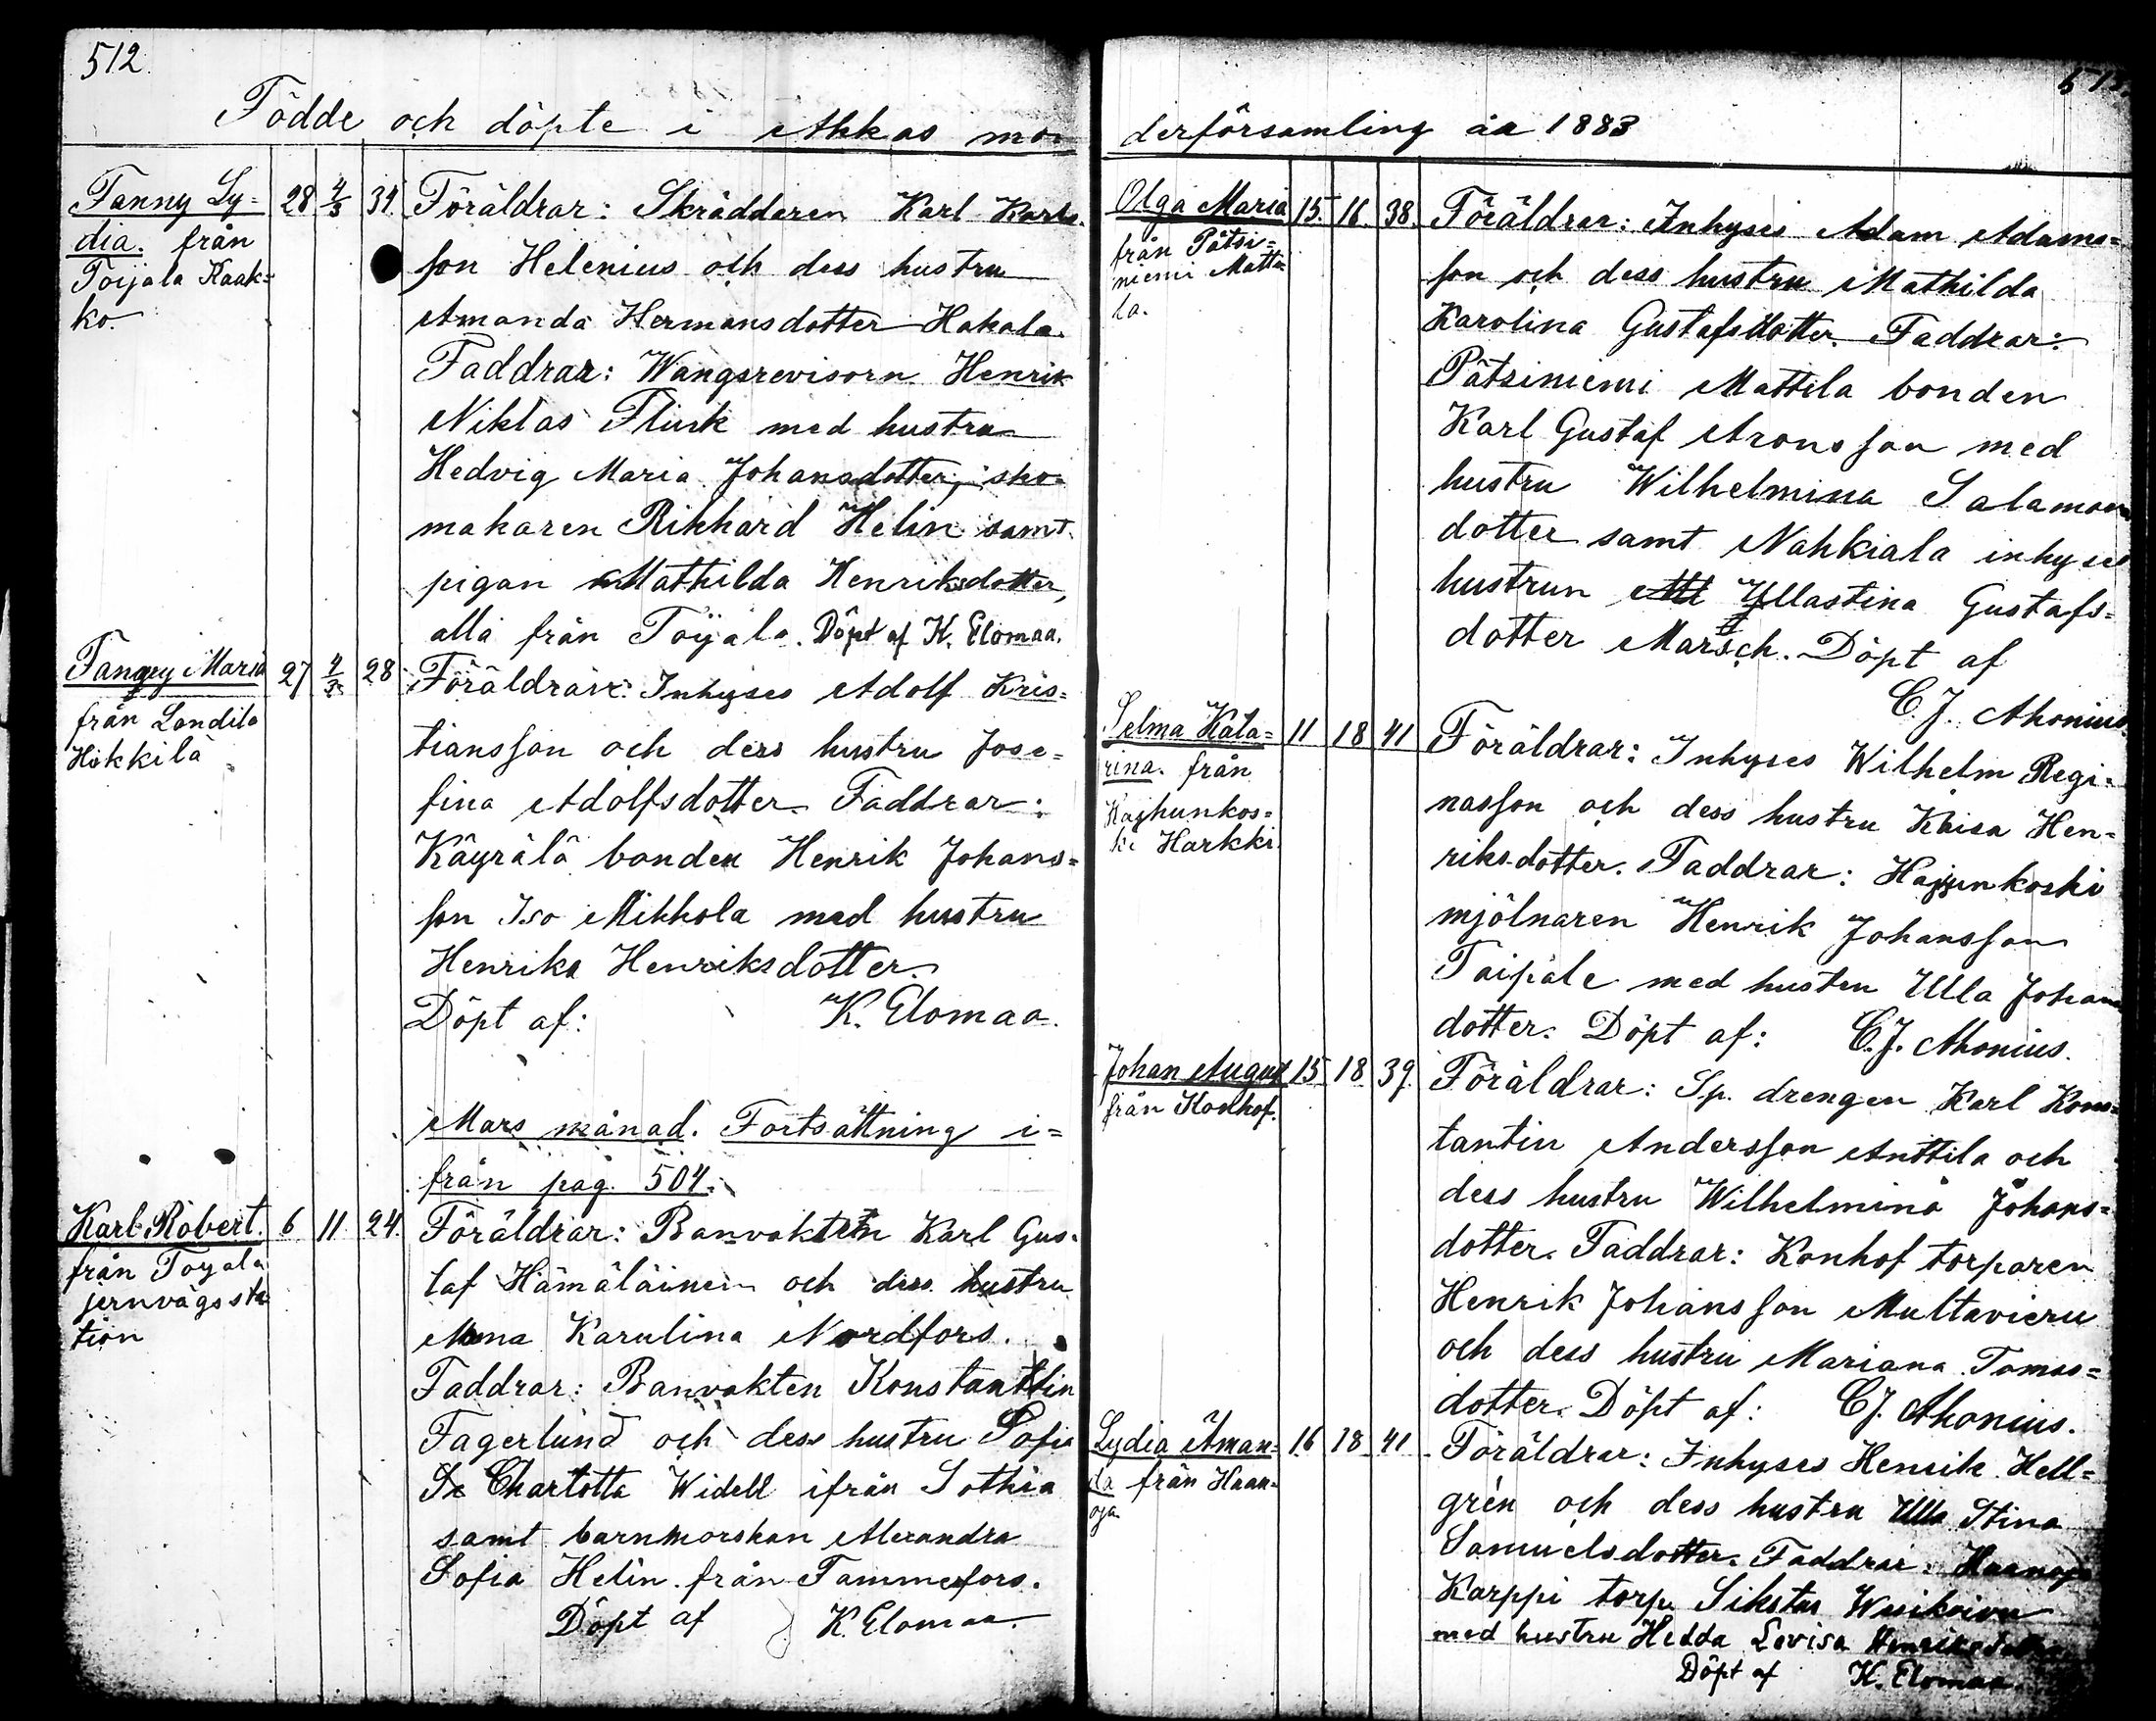 512.
Födde och döpte i Akkas mo-
Fanny Ly=
dia. från
Toijala Kaak=
ko.
28 4/3 34
Föräldrar: Skräddaren Karl Karls-
son Helenius och dess hustru
Amanda Hermansdotter Hakala.
Faddrar: Wangsrevisorn Henrik
Niklas Flink med hustru
Hedvig Maria Johansdotter, sko-
makaren Rikhard Helin samt
pigan Mathilda Henriksdotter,
alla från Toijala. Döpt af K. Elomaa.
Fanny Maria
från Londila
Hokkila
27 4/3 28
Föräldrar: Inhyses Adolf Kris=
tiansson och dess hustru Jose=
fina Adolfsdotter. Faddrar:
Käyrälä bonden Henrik Johans=
son Iso Mikkola med hustru
Henrika Henriksdotter.
Döpt af: K. Elomaa.
Mars månad. Fortsättning i=
från pag. 504.
Karl Robert.
från Toijala
jernvägssta
tion
6 11 24.
Föräldrar: Banvakten Karl Gus-
taf Hämäläinen och dess hustru
Anna Karulina Nordfors.
Faddrar: Banvakten Konstantin
Fagerlund och dess hustru Sofia
Charlotta Widell ifrån Sothia
samt barnmorskan Alexandra
Sofia Helin från Tammerfors.
Döpt af K. Elomaa.
513.
derförsamling åa 1883
Olga Maria
från Pätsi=
niemi Matti
la.
15. 16. 38.
Föräldrar: Inhyses Adam Adams=
son och dess hustru Mathilda
Karolina Gustafsdotter. Faddrar:
Pätsiniemi Mattila bonden
Karl Gustaf Aronsson med
hustru Wilhelmina Salamons
dotter samt Nahkiala inhyses
hustrun Ullastina Gustafs=
dotter Marsch. Döpt af
C. J. Ahonius.
Selma Kata=
rina. från
Kajhunkos=
ki Harkki.
11 18 41
Föräldrar: Inhyses Wilhelm Regi-
nasson och dess hustru Kaisa Hen=
riksdotter. Faddrar: Hajunkoski
mjölnaren Henrik Johansson
Taipale med hustru Ulla Johans
dotter. Döpt af: C. J. Ahonius.
Johan August
från Konhof.
15 18 39.
Föräldrar: Sp. drengen Karl Kons=
tantin Andersson Anttila och
dess hustru Wilhelmina Johans=
dotter. Faddrar: Konhof torparen
Henrik Johansson Multavieru
och dess hustru Mariana Tomas=
dotter. Döpt af: C. J. Ahonius.
Lydia Aman=
da från Haan=
oja
16 18 41
Föräldrar: Inhyses Henrik Hell=
grén och dess hustru Ulla Stina
Samuelsdotter. Faddrar: Haanoja
Karppi torp. Sikstus
med hustru Hedda Lovisa Henriksdotter
Döpt af K. Elomaa.